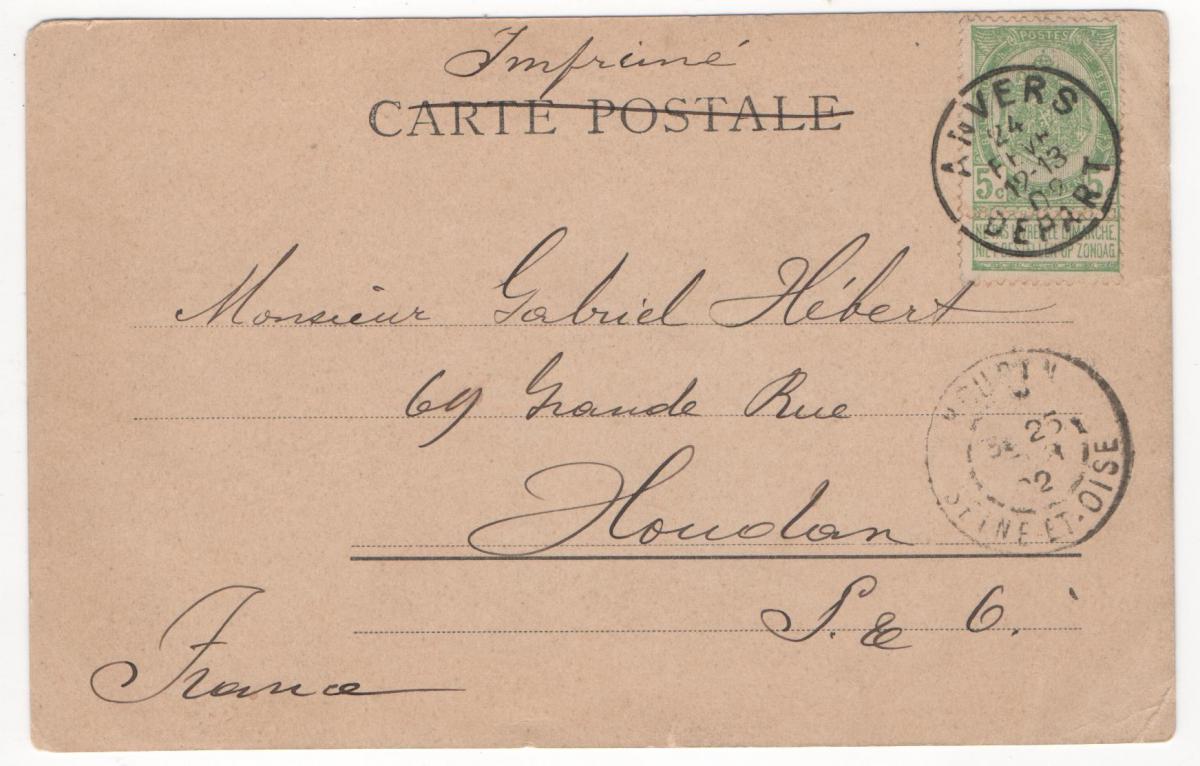 Imprimé
CARTE POSTALE
POSTES
ANVERS
24
12-13
DEPART
5c 5
NE PAS LIVRER LE DIMANCHE.
NIET BESTELLEN OP ZONDAG
Monsieur Gabriel Hébert
69 Grande Rue
Houdan
S. & O.
France
HOUDAN
25
02
SEINE-ET-OISE